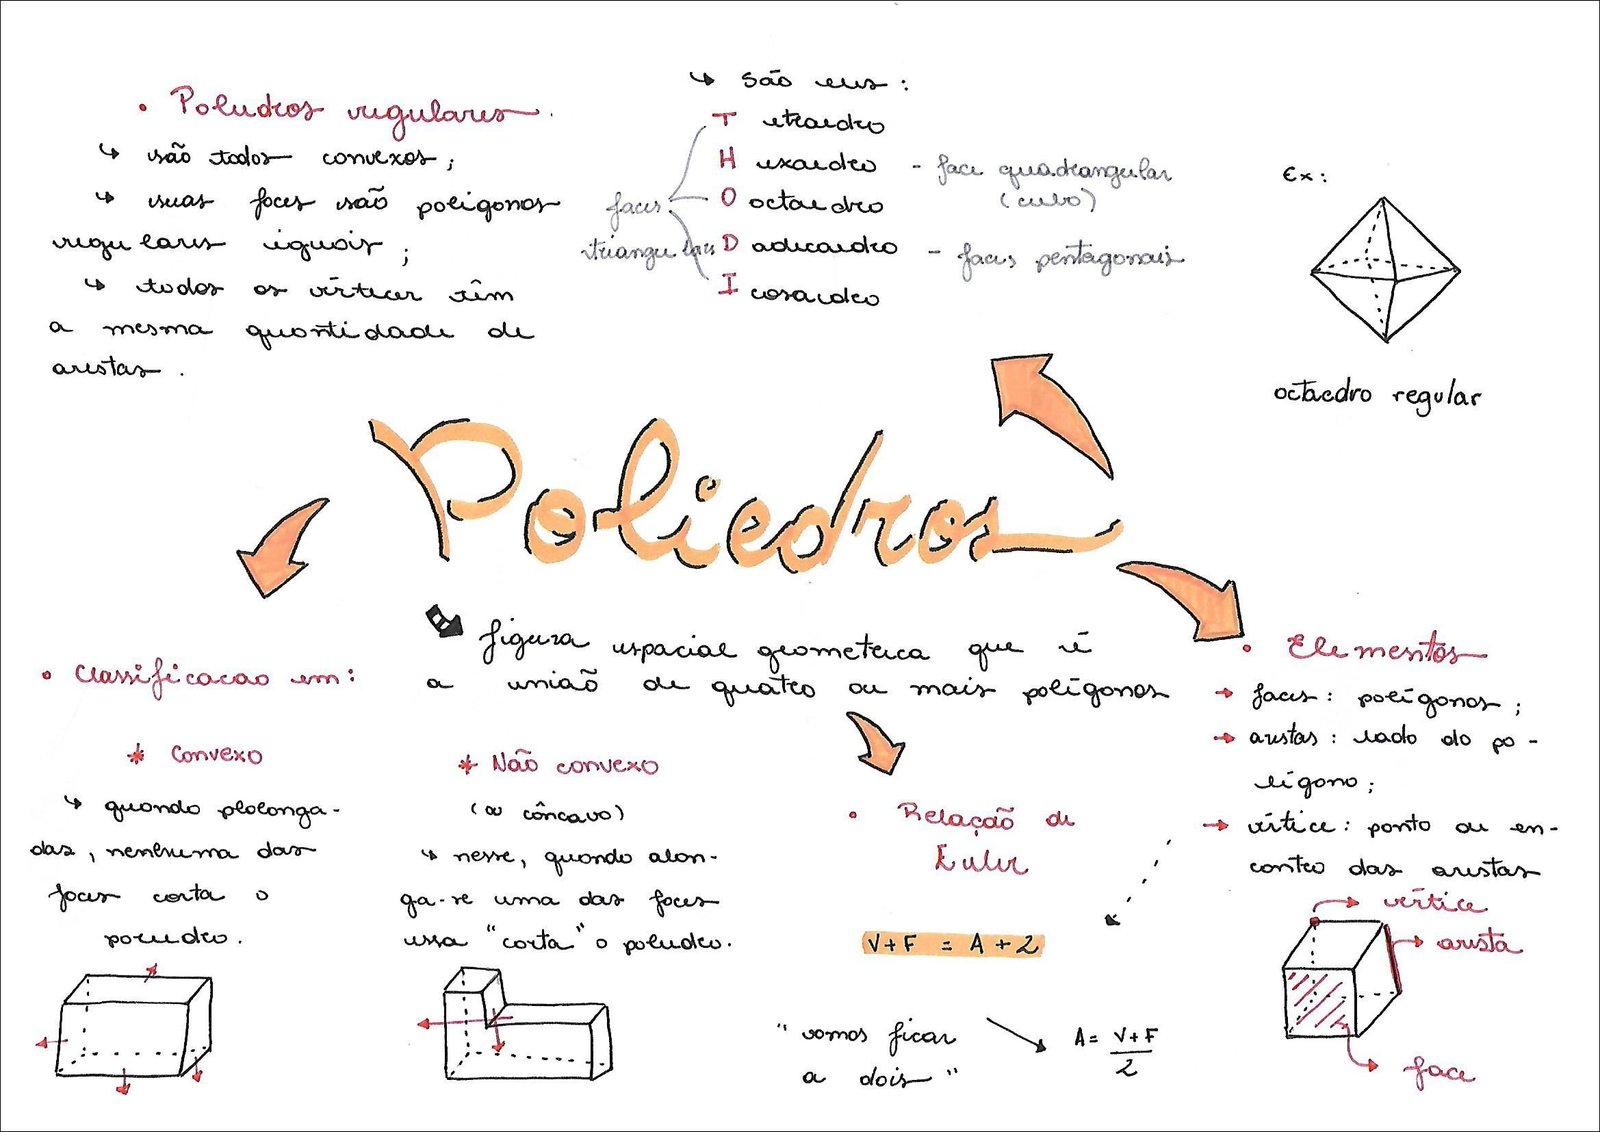 • Poliedros regulares.
↳ são todos convexos;
↳ suas faces são polígonos
regulares iguais;
↳ todos os vértices têm
a mesma quantidade de
arestas.
↳ São eles:
Tetraedro
Hexaedro - face quadrangular
(cubo)
Octaedro
Dodecaedro - faces pentagonais
Icosaedro
faces
triangulares
Ex:
octaedro regular
Poliedros
figura espacial geometrica que é
a união de quatro ou mais polígonos
• Classificacao em:
* Convexo
↳ quando plolonga-
das, nenhuma das
faces corta o
poliedro.
* Não convexo
(ou côncavo)
↳ nesse, quando alon-
ga-se uma das faces
essa "corta" o poliedro.
• Relação de
Euler
V+F = A+2
"vamos ficar
a dois"
A= V+F
2
• Elementos
→ faces: polígonos;
→ arestas: lado do po-
lígono;
→ vértice: ponto de en-
contro das arestas
vértice
aresta
face